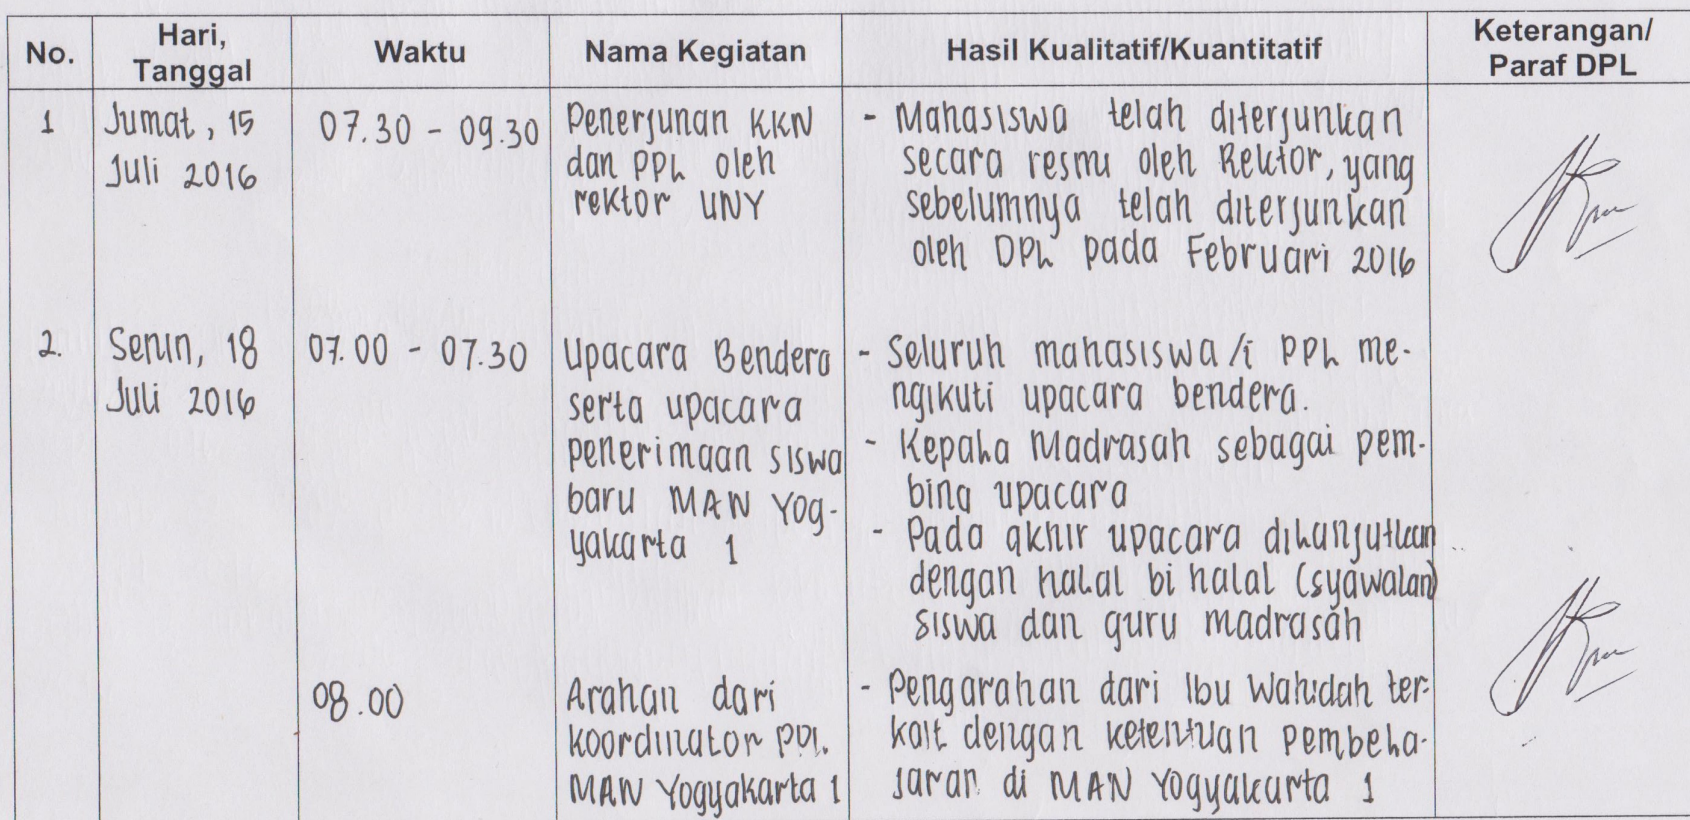 No.
Hari,
Tanggal
Waktu
Nama Kegiatan
Hasil Kualitatif/Kuantitatif
Keterangan/
Paraf DPL
1
Jumat, 15
Juli 2016
07.30 - 09.30
Penerjunan KKN
dan PPL oleh
rektor UNY
- Mahasiswa telah diterjunkan
secara resmi oleh Rektor, yang
sebelumnya telah diterjunkan
oleh DPL pada Februari 2016
2.
Senin, 18
Juli 2016
07.00 - 07.30
Upacara Bendera
serta upacara
penerimaan siswa
baru MAN Yog-
yakarta 1
- Seluruh mahasiswa/i PPL me-
ngikuti upacara bendera.
- Kepala Madrasah sebagai pem-
bina upacara
- Pada akhir upacara dilanjutkan
dengan halal bi halal (syawalan)
siswa dan guru madrasah
08.00
Arahan dari
koordinator PPL
MAN Yogyakarta 1
- Pengarahan dari Ibu Wahidah ter-
kait dengan ketentuan pembela-
jaran di MAN Yogyakarta 1